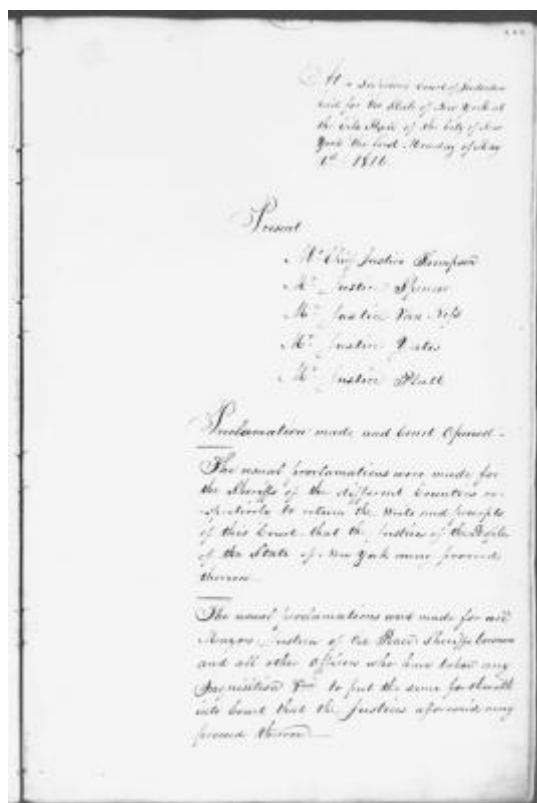 At a Supreme Court of Judicature
held for the State of New York at
the City Hall of the City of New
York the first Monday of May
1st 1816.
Present
Mr Chief Justice Thompson
Mr Justice Spencer
Mr Justice Van Ness
Mr Justice Yates
Mr Justice Platt
Proclamation made and Court Opened -
The usual proclamations were made for
the Sheriffs of the different Counties re-
spectively to return the Writs and precepts
of this Court that the Justices of the People
of the State of New York may proceed
thereon
The usual proclamations were made for all
Mayors Justices of the Peace Sheriffs Coroners
and all other Officers who have taken any
Inquisition &c to put the same forthwith
into Court that the Justices aforesaid may
proceed thereon